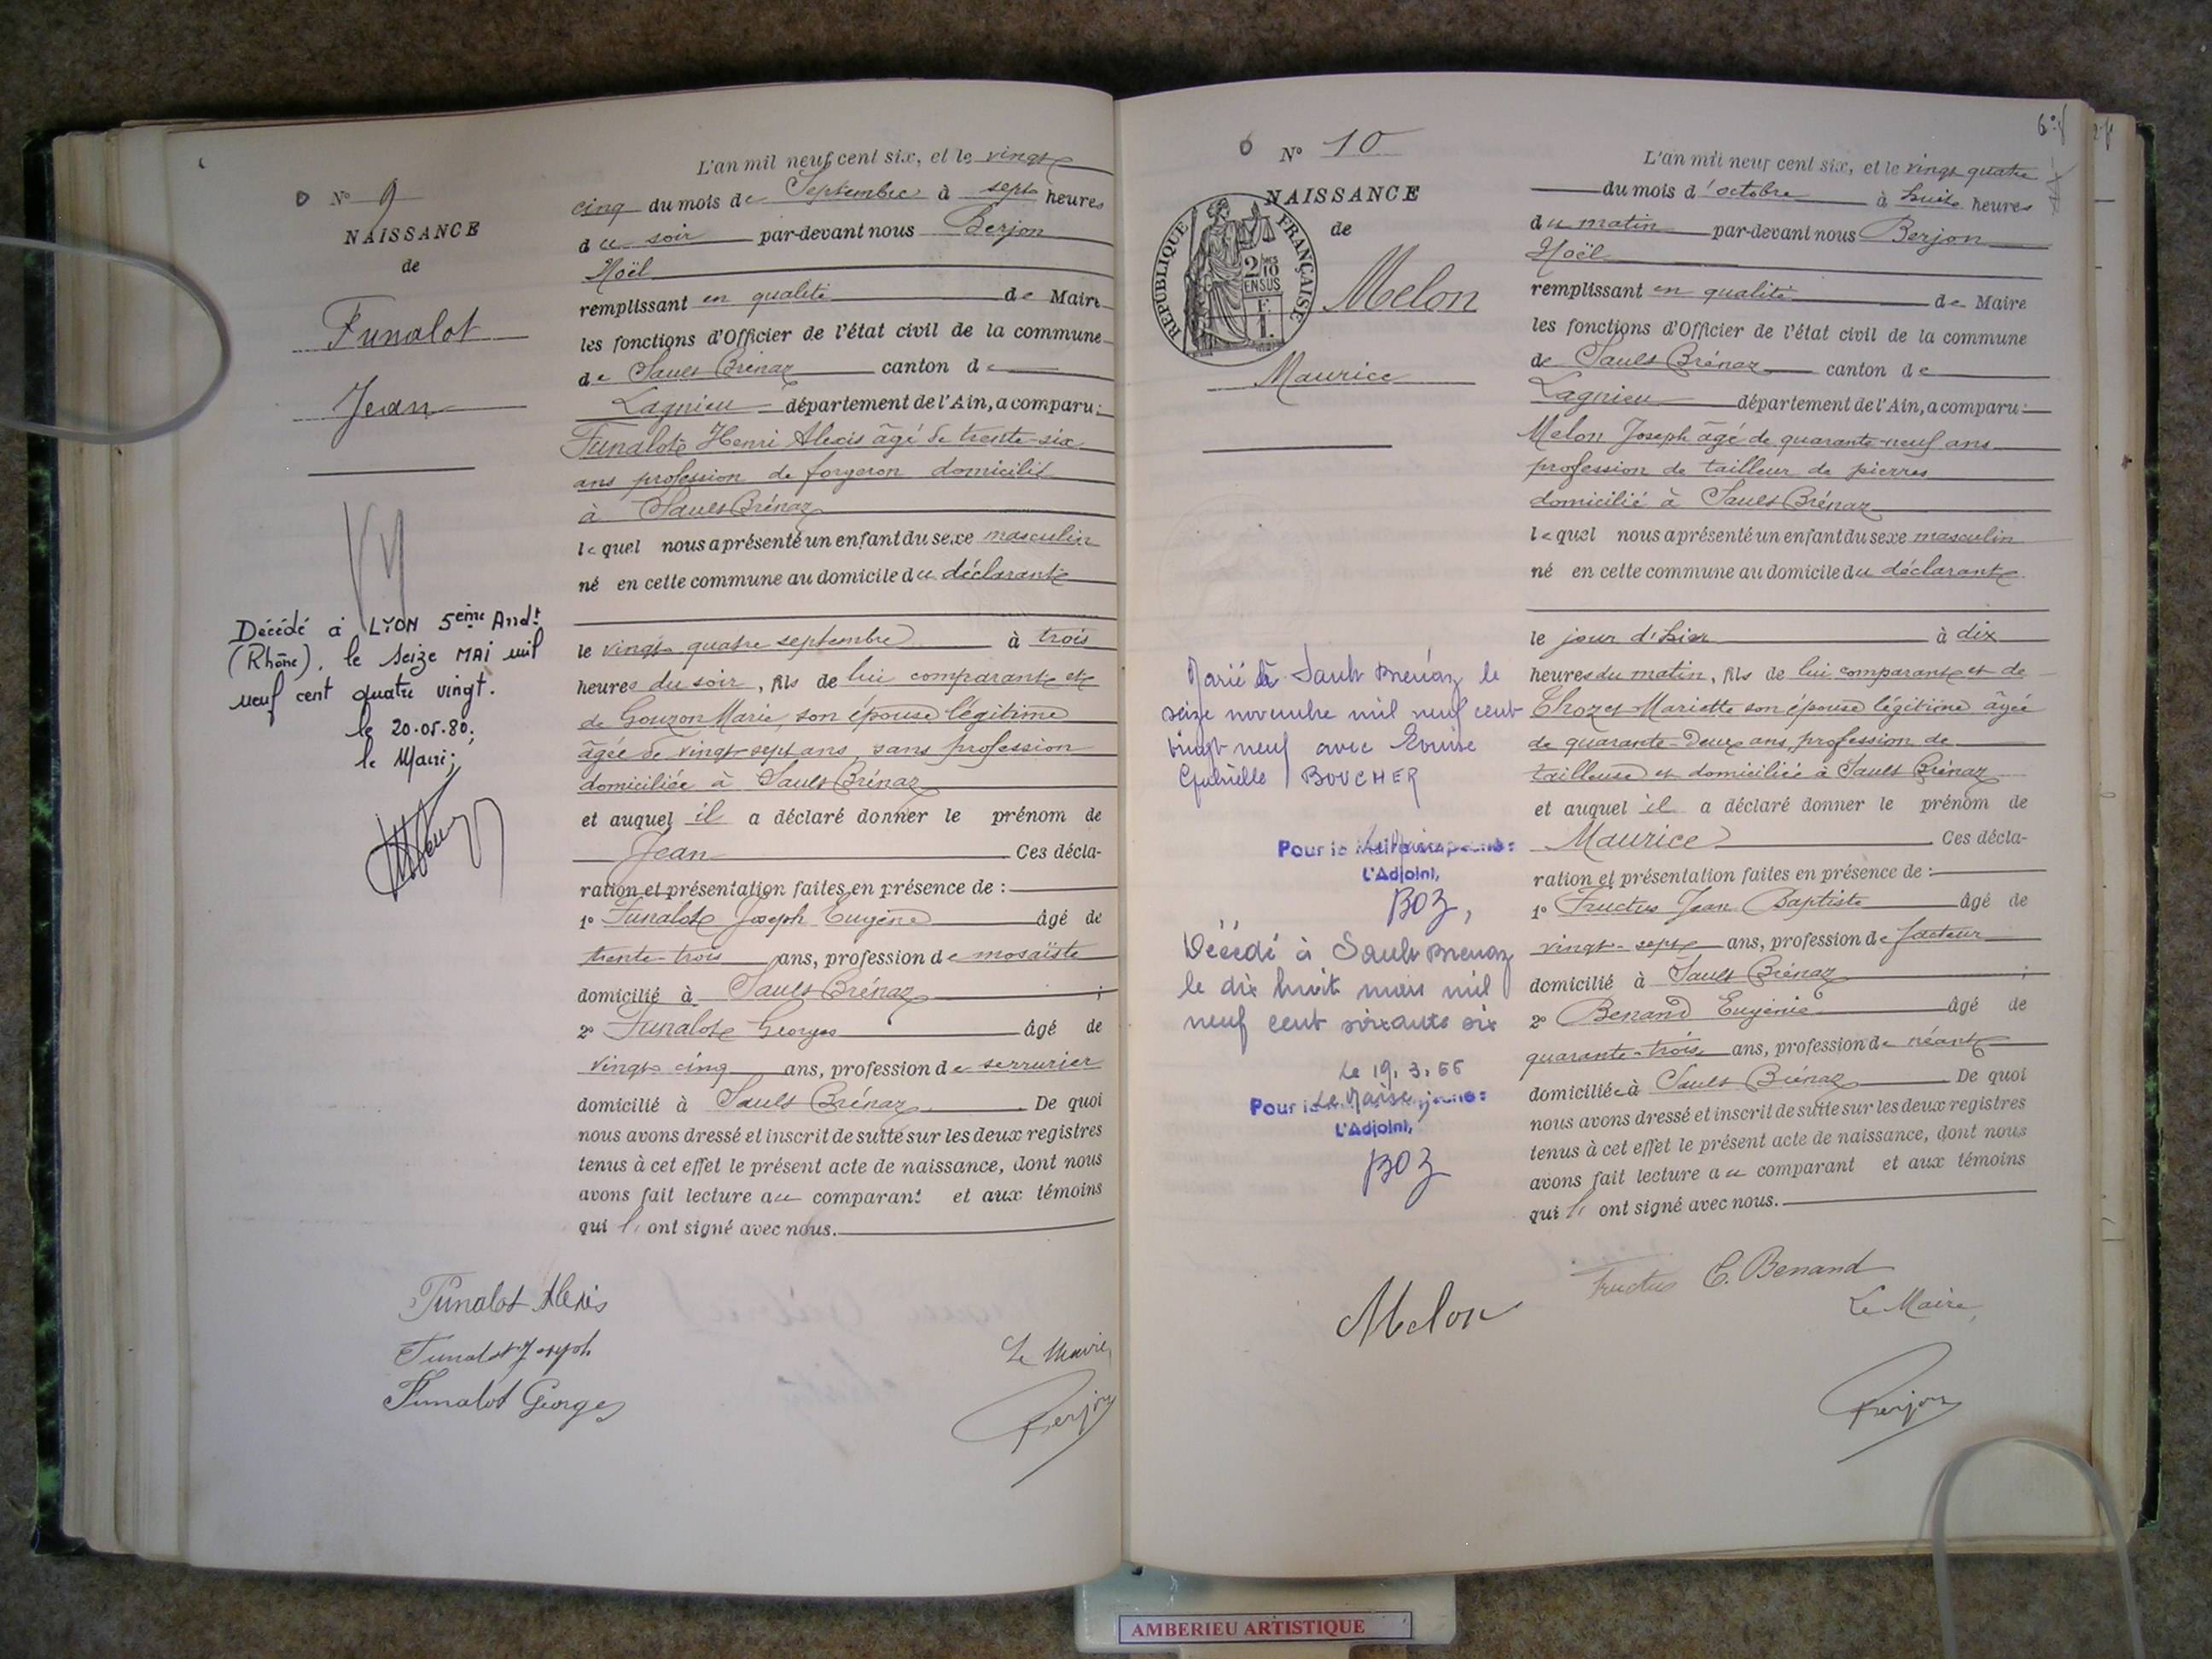 N° 9
NAISSANCE
de
Funalot
Jean
Décédé à LYON 5ème Arrdt
(Rhône), le seize MAI mil
neuf cent quatre vingt.
le 20.05.80.
le Maire;
L'an mil neuf cent six, et le vingt
cinq du mois de Septembre à sept heures
du soir par-devant nous Berjon
Noël
remplissant en qualité de Maire
les fonctions d'Officier de l'état civil de la commune
de Sault Brénaz canton de
Lagnieu département de l'Ain, a comparu:
Funalot Henri Alexis âgé de trente-six
ans profession de forgeron domicilié
à Sault Brénaz
lequel nous a présenté un enfant du sexe masculin
né en cette commune au domicile du déclarant
le vingt quatre septembre à trois
heures du soir, fils de lui comparant et
de Gouzon Marie, son épouse légitime
âgée de vingt-sept ans, sans profession
domiciliée à Sault Brénaz
et auquel il a déclaré donner le prénom de
Jean Ces décla-
ration et présentation faites en présence de :
1° Funalot Joseph Eugène âgé de
trente-trois ans, profession de mosaïste
domicilié à Sault Brénaz ;
2° Funalot Georges âgé de
vingt-cinq ans, profession de serrurier
domicilié à Sault Brénaz. De quoi
nous avons dressé et inscrit de suite sur les deux registres
tenus à cet effet le présent acte de naissance, dont nous
avons fait lecture au comparant et aux témoins
qui l'ont signé avec nous.
Funalot Alexis
Funalot Joseph
Funalot Georges
Le Maire,
Berjon
N° 10
NAISSANCE
de
RÉPUBLIQUE FRANÇAISE
2/10 EN SUS
Melon
Maurice
Marié à Sault Brénaz le
seize novembre mil neuf cent
vingt neuf avec Louise
Gabrielle BOUCHER
Pour le Maire
L'Adjoint,
BOZ,
Décédé à Sault Brénaz
le dix huit mars mil
neuf cent soixante six
Le 19.3.66
Pour le Maire,
L'Adjoint,
BOZ
L'an mil neuf cent six, et le vingt quatre
du mois d'octobre à huit heures
du matin par-devant nous Berjon
Noël
remplissant en qualité de Maire
les fonctions d'Officier de l'état civil de la commune
de Sault Brénaz canton de
Lagnieu département de l'Ain, a comparu:
Melon Joseph âgé de quarante-neuf ans
profession de tailleur de pierres
domicilié à Sault Brénaz
lequel nous a présenté un enfant du sexe masculin
né en cette commune au domicile du déclarant
le jour d'hier à dix
heures du matin, fils de lui comparant et de
Chozet Mariette son épouse légitime âgée
de quarante-deux ans, profession de
tailleuse et domiciliée à Sault Brénaz
et auquel il a déclaré donner le prénom de
Maurice Ces décla-
ration et présentation faites en présence de :
1° Fructus Jean Baptiste âgé de
vingt-sept ans, profession de facteur
domicilié à Sault Brénaz ;
2° Benand Eugénie âgé de
quarante-trois ans, profession de néant
domiciliée à Sault Brénaz De quoi
nous avons dressé et inscrit de suite sur les deux registres
tenus à cet effet le présent acte de naissance, dont nous
avons fait lecture au comparant et aux témoins
qui l'ont signé avec nous.
Melon
Fructus
E. Benand
Le Maire,
Berjon
AMBERIEU ARTISTIQUE